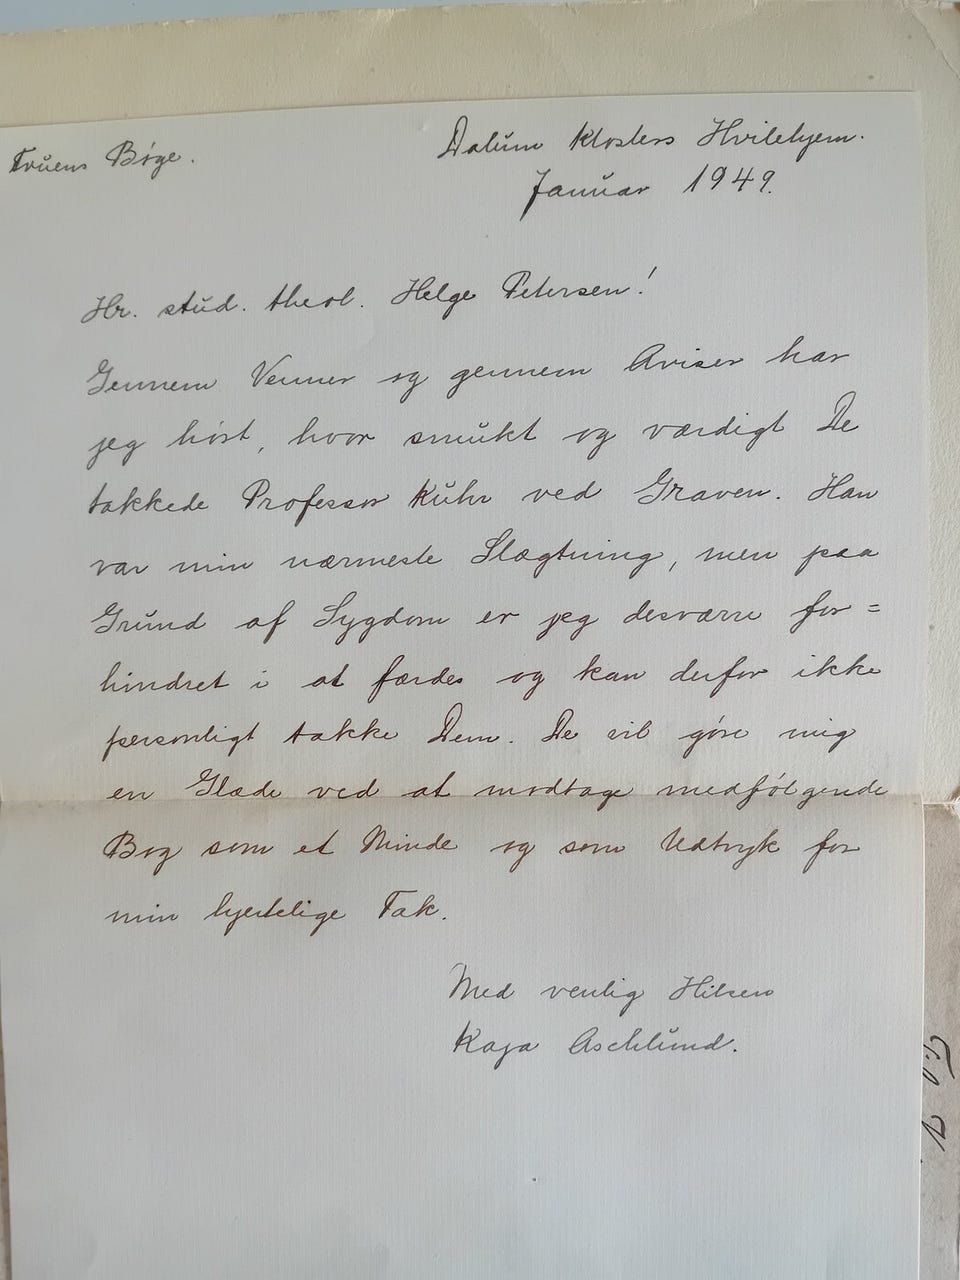 Fruens Bøge.
Dalum Klosters Hvilehjem.
Januar 1949.
Hr. stud. theol. Helge Petersen!
Gennem Venner og gennem Aviser har
jeg hørt, hvor smukt og værdigt De
takkede Professor Kuhr ved Graven. Han
var min nærmeste Slægtning, men paa
Grund af Sygdom er jeg desværre for=
hindret i at færdes og kan derfor ikke
personligt takke Dem. De vil gøre mig
en Glæde ved at modtage medfølgende
Bog som et Minde og som Udtryk for
min hjertelige Tak.
Med venlig Hilsen
Kaja Aschlund.
Til